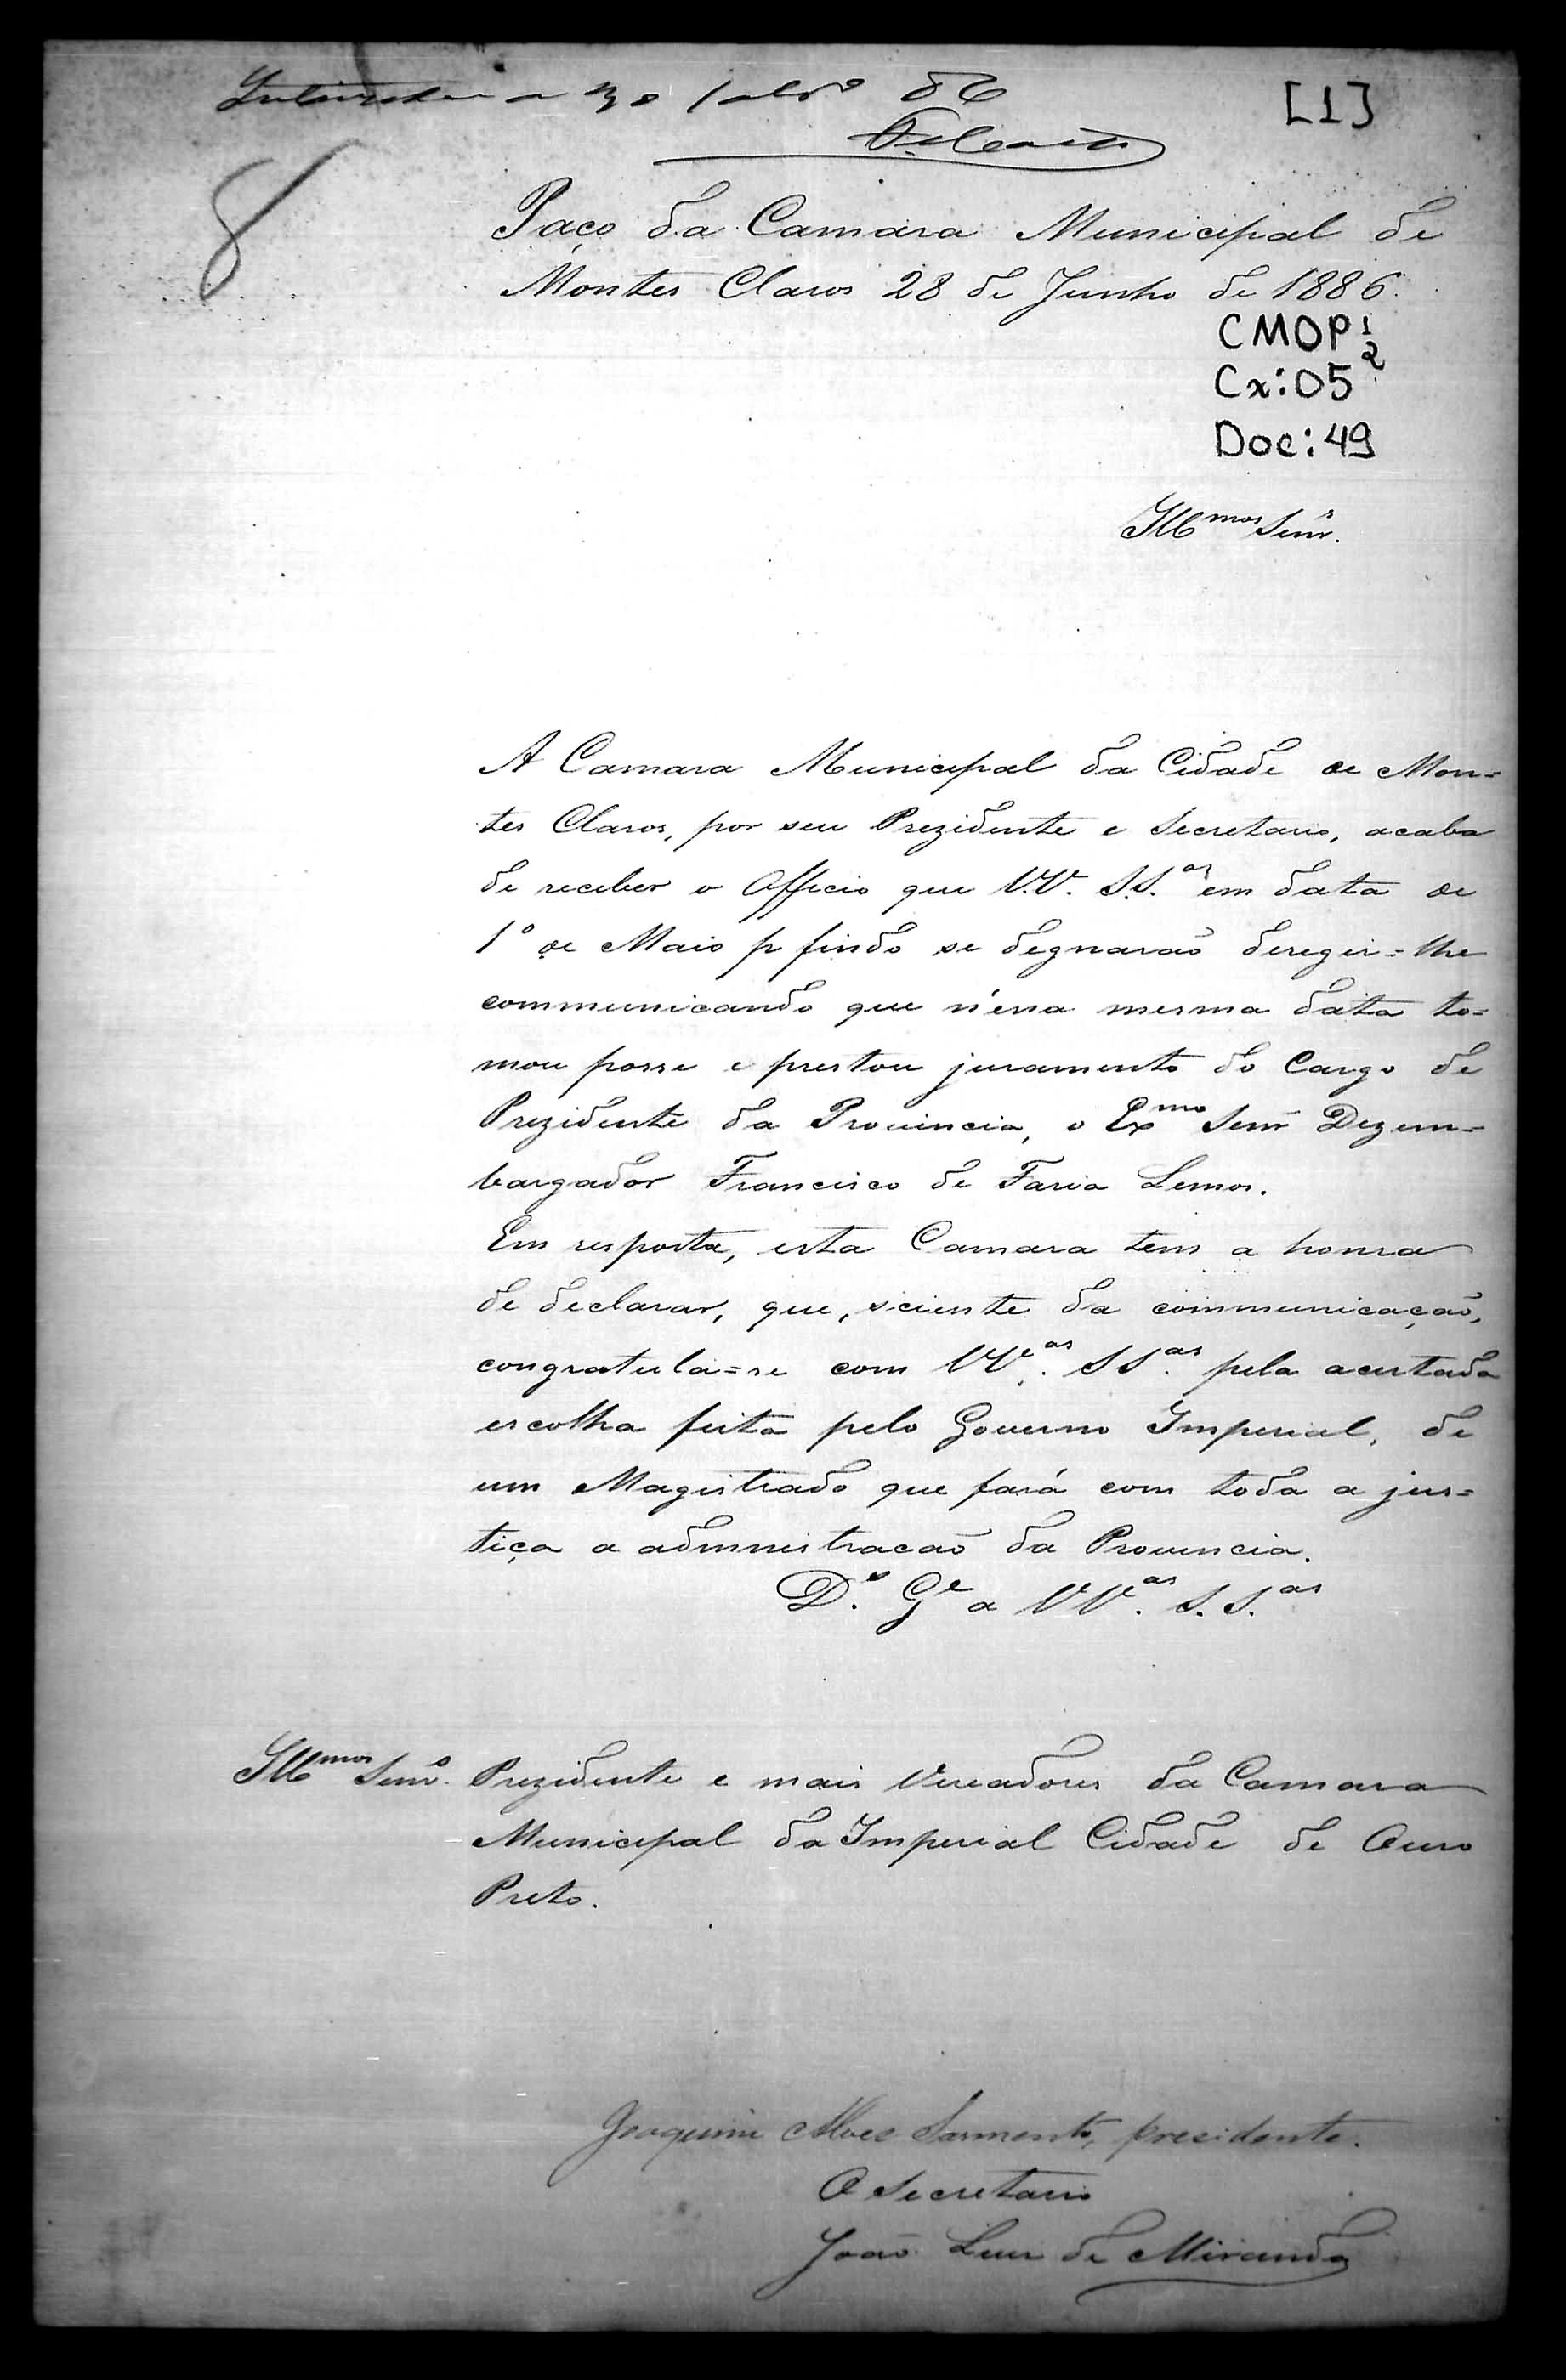 [1]
8
Paço da Camara Municipal de
Montes Claros 28 de Junho de 1886.
CMOP 1/2
Cx: 05
Doc: 49
Ill.mos Senr.s
A Camara Municipal da Cidade de Mon=
tes Claros, por seu Prezidente e Secretario, acaba
de receber o Officio que V.V. S.S.as em data de
1º de Maio p findo se degnarão deregir=lhe
communicando que n'essa mesma data to=
mou posse e prestou juramento do Cargo de
Prezidente da Provincia, o Exmo Senr Dezem=
bargador Francisco de Faria Lemos.
Em resposta, esta Camara tem a honra
de declarar, que, sciente da communicação,
congratula=se com VV.as SS.as pela acertada
escolha feita pelo Governo Imperial, de
um Magistrado que fará com toda a jus=
tiça a admnistracão da Provincia.
D.s G.e a VV.as S.S.as
Ill.mos Senr.s Prezidente e mais Vereadores da Camara
Municipal da Imperial Cidade de Ouro
Preto.
Joaquim Alves Sarmento, presidente.
O Secretario
João Luis de Miranda